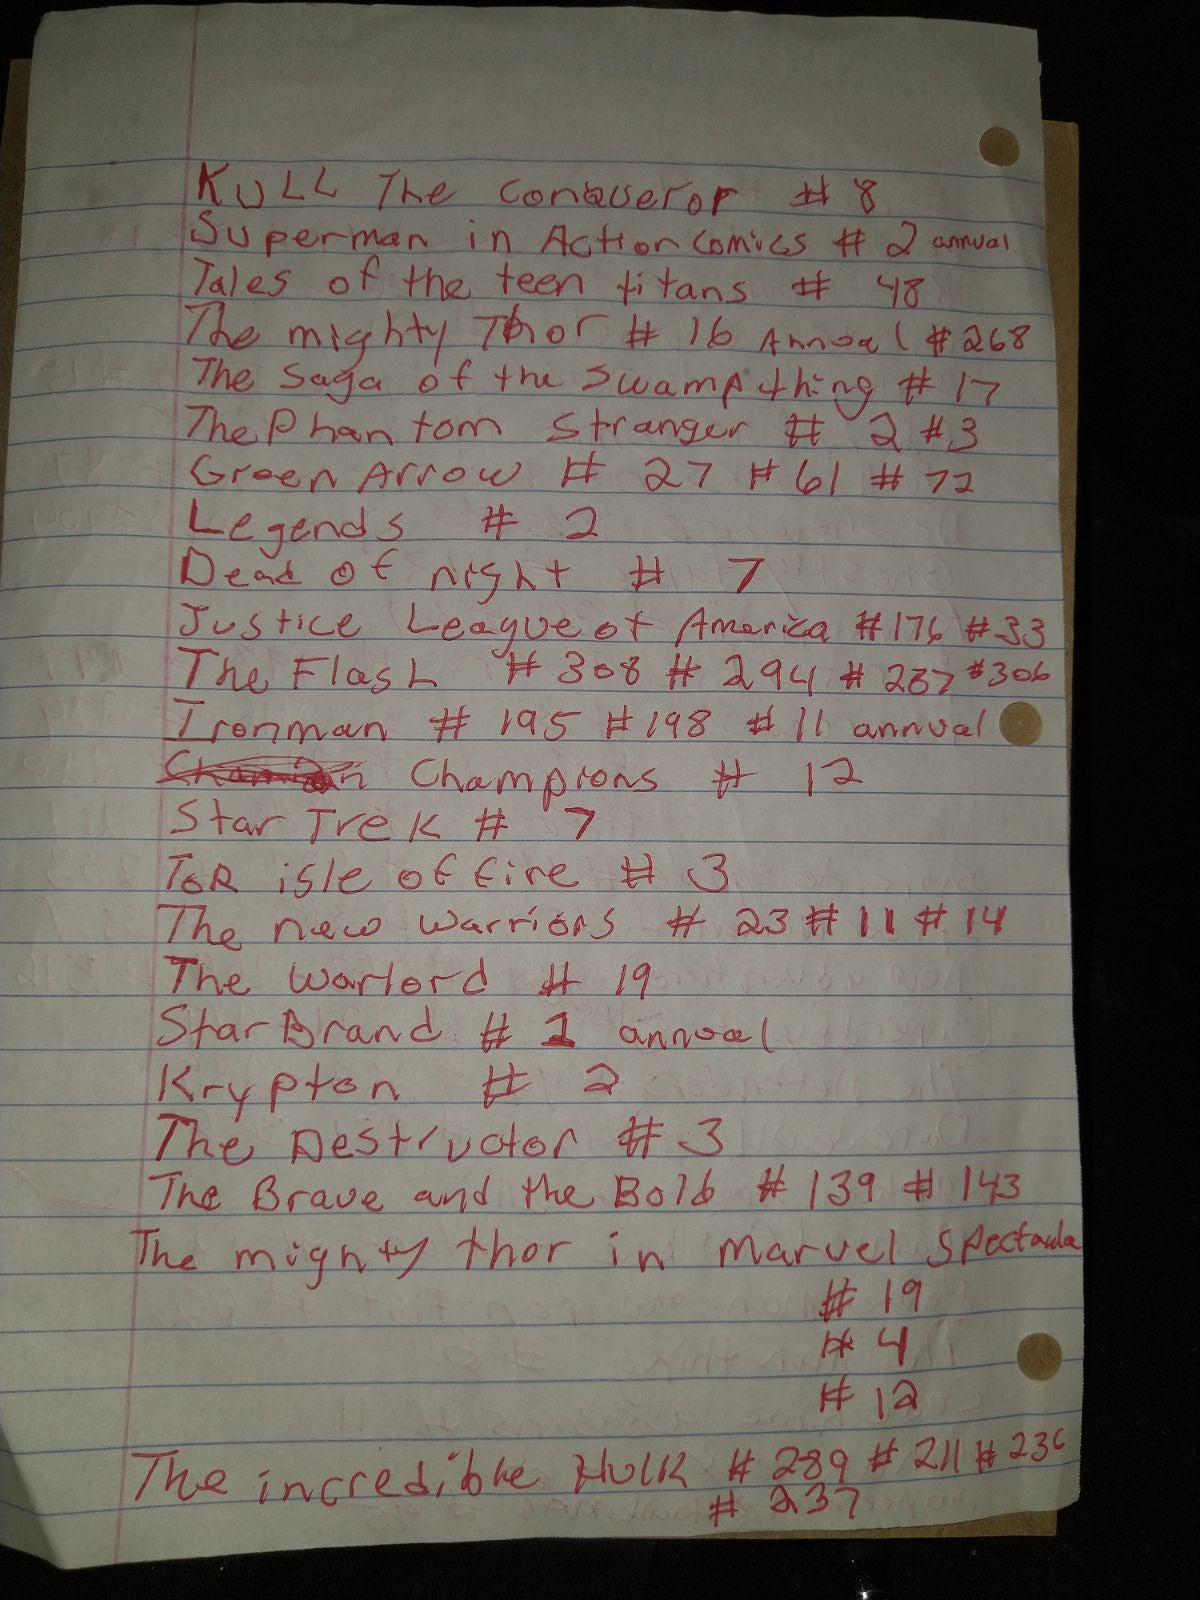 KULL The Conqueror # 8
Superman in Action Comics # 2 annual
Tales of the teen titans # 48
The mighty Thor # 16 Annual #268
The Saga of the Swamp thing # 17
The Phantom Stranger # 2 #3
Green Arrow # 27 #61 # 72
Legends # 2
Dead of night # 7
Justice League of America #176 #33
The Flash # 308 # 294 # 287 #306
Ironman # 195 #198 #11 annual
Champions # 12
Star Trek # 7
ToR isle of fire # 3
The new warriors # 23 # 11 # 14
The warlord # 19
Star Brand # 1 annual
Krypton # 2
The Destructor # 3
The Brave and the Bold # 139 # 143
The mighty thor in marvel Spectacula
# 19
# 4
# 12
The incredible Hulk # 289 # 211 # 236
# 237